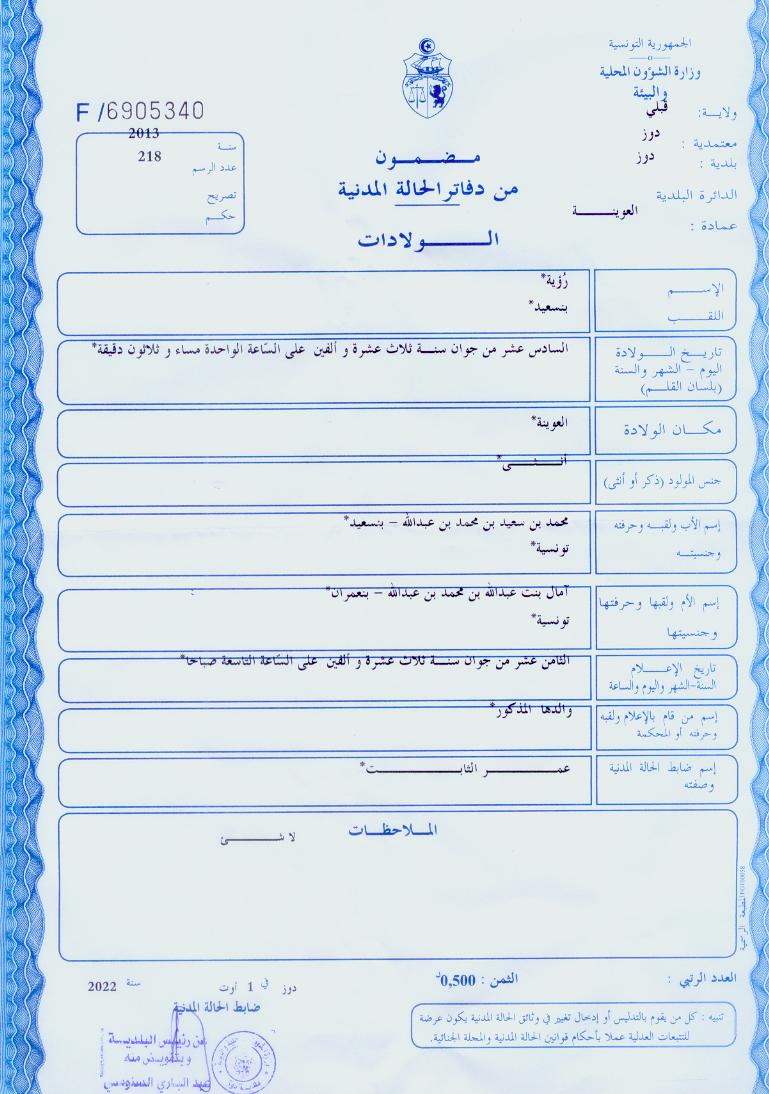 الجمهورية التونسية
وزارة الشؤون المحلية
والبيئة
ولايــة: قبلي
معتمدية : دوز
بلدية : دوز
الدائرة البلدية
عمادة : العوينـــــــة
F /6905340
سنـة 2013
عدد الرسم 218
تصريح
حكـم
مـضـمـــون
من دفاتر الحالة المدنية
الـــــــولادات
الإســـــم رُؤية*
اللقـــب بنسعيد*
تاريـخ الـــــولادة السادس عشر من جوان سنـــة ثلاث عشرة و ألفين على السّاعة الواحدة مساء و ثلاثون دقيقة*
اليوم – الشهر والسنة
(بلسان القلـــم)
مكـــان الولادة العوينة*
جنس المولود (ذكر أو أنثى) أنـــــثـــــى*
إسم الأب ولقبـــه وحرفته محمد بن سعيد بن محمد بن عبدالله – بنسعيد*
وجنسيتـــه تونسية*
إسم الأم ولقبها وحرفتهـا آمال بنت عبدالله بن محمد بن عبدالله – بنعمران*
وجنسيتهـا تونسية*
تاريخ الإعـــــلام الثامن عشر من جوان سنـــة ثلاث عشرة و ألفين على السّاعة التاسعة صباحا*
السنة-الشهر واليوم والساعة
إسم من قام بالإعلام ولقبه والدها المذكور*
وحرفته أو المحكمة
إسم ضابط الحالة المدنية عمــــــــــر الثابــــــــــــت*
وصفته
الملاحظـــات
لا شـــــــئ
المطبعة الرسمية
العدد الرتبي :
الثمن : 0,500د
دوز في 1 أوت سنة 2022
ضابط الحالة المدنية
تنبيه : كل من يقوم بالتدليس أو إدخال تغيير في وثائق الحالة المدنية يكون عرضة
للتتبعات العدلية عملا بأحكام قوانين الحالة المدنية والمجلة الجنائية.
عن رئيس البلديـــة
وبتفويض منه
عبد الباري السنوسي